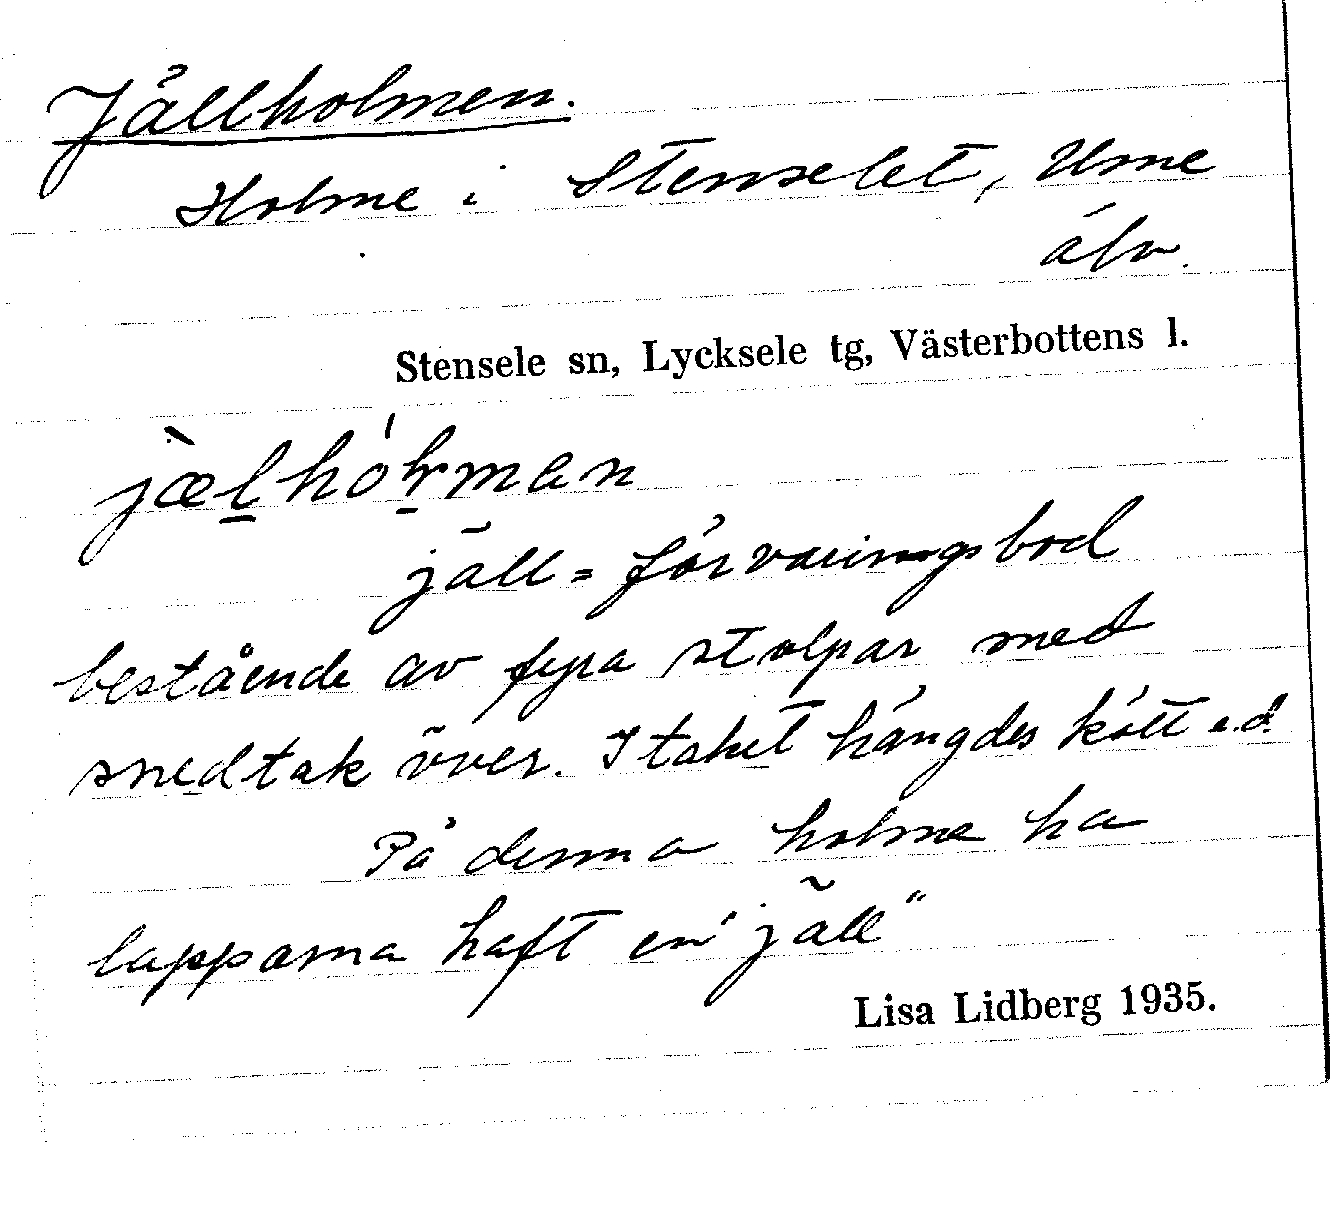 Jällholmen.
Holme i Stenselet, Ume
älv.
Stensele sn, Lycksele tg, Västerbottens l.
jäll = förvaringsbod
bestående av fyra stolpar med
snedtak över. I taket hängdes kött e.d.
På denna holme ha
lapparna haft en "jäll"
Lisa Lidberg 1935.